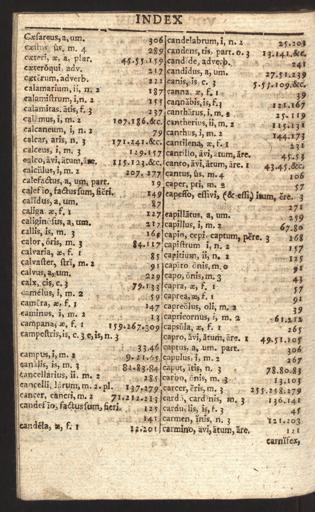 INDEX
Cæsareus, a, um. 306
cæstus ûs, m. 4 289
cæteri, æ, a, plur. 45.55.159
cæteróqui, adv. 217
cætĕrum, adverb. 221
calamarium, ii, n. 2 187
calamistrum, i, n. 2 151
calamitas, ātis, f. 3 237
calămus, i, m. 2 107.186.&c.
calcaneum, i, n. 2 79
calcar, āris, n. 3 171.241.&c.
calceus, i, m. 3 129.157
calco, āvi, ātum, āre. 115.123.&c.
calcŭlus, i, m. 2 207.277
calefactus, a, um, part. 19
calefīo, factus sum, fieri. 149
calĭdus, a, um. 87
calĭga, æ, f. 1 127
caliginōsus, a, um. 217
callis, is, m. 3 161
calor, ōris, m. 3 84.117
calvaria, æ, f. 1 85
calvaster, stri, m. 2 91
calvus, a, um 229
calx, cis, c. 3 79.133
camēlus, i, m. 2 59
camĕra, æ, f. 1 147
caminus, i, m. 2 13
campana, æ, f. 1 159.267.309
campestris, is, c. 3 e, is, n. 3
33.46
campus, i, m. 2 9.21.65
canālis, is, m. 3 82.83.84
cancellarius, ii. m. 2 285
cancelli, lōrum, m. 2. pl. 137.179
cancer, cancri, m. 2 71.212.213
candefīo, factus sum, fieri.
141
candēla, æ, f. 1 12.201
candelabrum, i, n. 2 25.203
candens, tis. part. o. 3 13.141.&c.
candĭde, adverb. 241
candĭdus, a, um. 27.51.239
canis, is, c. 3 5.57.109.&c.
canna, æ, f. 1 39
cannăbis, is, f. 3 121.167
canthărus, i, m. 2 25.119
cantherius, ii, m. 2 115.131
canthus, i, m. 2 144.173
cantilena, æ, f. 1 231
cantillo, āvi, ātum, āre. 45.53
canto, āvi, ātum, āre. 1 43.45.&c.
cantus, ûs, m. 4 106
caper, pri, m. 2 57
capesso, essivi, (& essi) itum, ĕre. 3
271
capillātus, a, um. 259
capillus, i, m. 2 67.80
capio, cepi, captum, pĕre. 3 268
capistrum i, n. 2 157
capitium, ii, n. 2 125
capito ōnis, m. o 91
capo, ōnis, m. 3 43
capra, æ, f. 1 57
caprea, æ, f. 1 91
capreŏlus, oli, m. 2 39
capricornus, i, m. 2 61.212
capsŭla, æ, f. 1 265
capro, āvi, ātum, āre. 1 49.51.105
captus, a, um. part. 306
capulus, i, m. 2 267
caput, itis, n. 3 78.80.83
carbo, ōnis, m. 3 13.103
carcer, ĕris, m. 3 255.258.279
cardo, cardinis, m. 3 136.141
carduelis, is, f. 3 45
carmen, ĭnis, n. 3 121.203
carmino, āvi, ātum, āre. 121
carnifex,